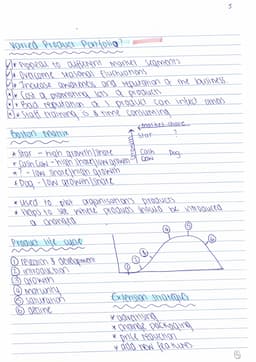 5
Varied Product Portfolio?
* Appeal to different market segments
* Overcome seasonal fluctuations
* Increase awareness and reputation of the business
* Cost of promoting lots of products
* Bad reputation of 1 product can infect others
* Staff training is a time consuming
Boston Matrix
* Star - high growth/share
* Cash Cow - high share/low growth
* ? - low share/high growth
* Dog - low growth/share
market share
Star ?
Cash Dog
Cow
* used to plan organisations products
* Helps to see where products should be introduced
a changed
Product life cycle
① research & development
② introduction
③ growth
④ maturity
⑤ saturation
⑥ decline
① ② ③ ④ ⑤ ⑥
Extension strategies
* advertising
* change packaging
* price reduction
* add new features